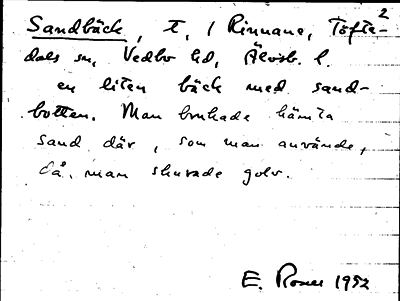 2
Sandbäck, t, / Rinnane, Töfte-
dals sn, Vedbo hd, Älvsb. l.
en liten bäck med sand-
botten. Man brukade hämta
sand där, som man använde,
då man skurade golv.
E. Rosen 1952